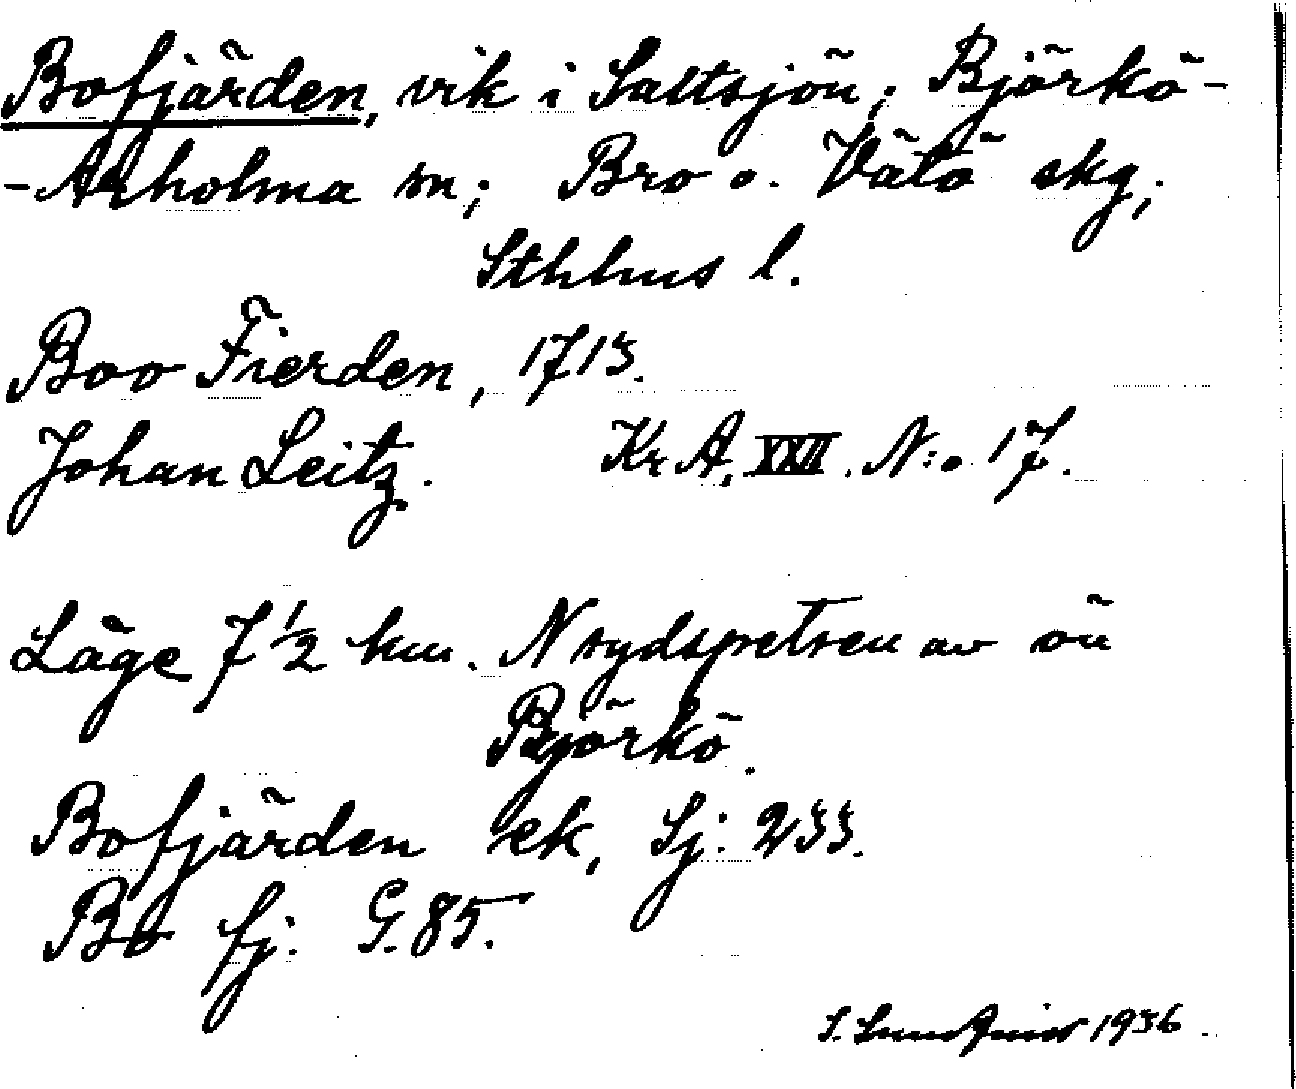 Bofjärden, vik i Saltsjön; Björkö-
-Arholma sn; Bro o. Vätö skg;
Sthlms l.
Boo Fierden, 1713.
Johan Leitz. Kr A, XXII. N:o 17.
Läge 7 1/2 km. N sydspetsen av ön
Björkö.
Bofjärden ek, Sj: 233.
Bo fj. G. 85.
S. Lundqvist 1936.